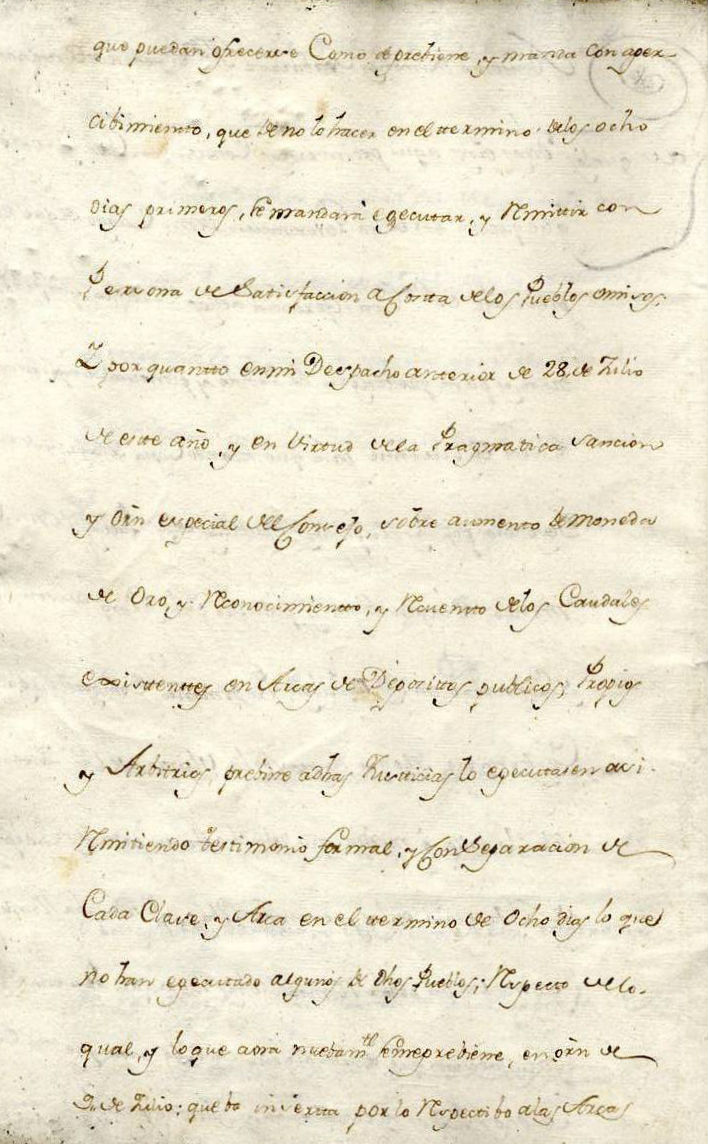 que puedan ofrecerse Como se prebiene, y manda con aper-
cibimientto, que de no lo hacer en el termino de los ocho
dias primeros, se mandara egecutar, y Remitir con
Persona de Satisfaccion a Costta de los Pueblos omisos.
Y por quantto en mi Despacho antterior de 28, de Julio
de este año, y en Virtud de la Pragmatica Sancion
y orñ especial del Consejo, sobre aumento de Moneda
de Oro, y Reconocimientto, y Recuentto de los Caudales
existtenttes en Arcas de Depositos publicos, Propios
y Arbitrios, prebine a dhas Justticias lo egecutasen asi.
Remitiendo testimonio formal, y Con Separacion de
Cada Clase, y Arca en el termino de Ocho dias lo que
no han egecutado algunos de dhos Pueblos; Respecto de lo
qual, y lo que aora nuebamte se me prebiene, en orñ de
de Julio; que ba inserta por lo Respectibo a las Arcas